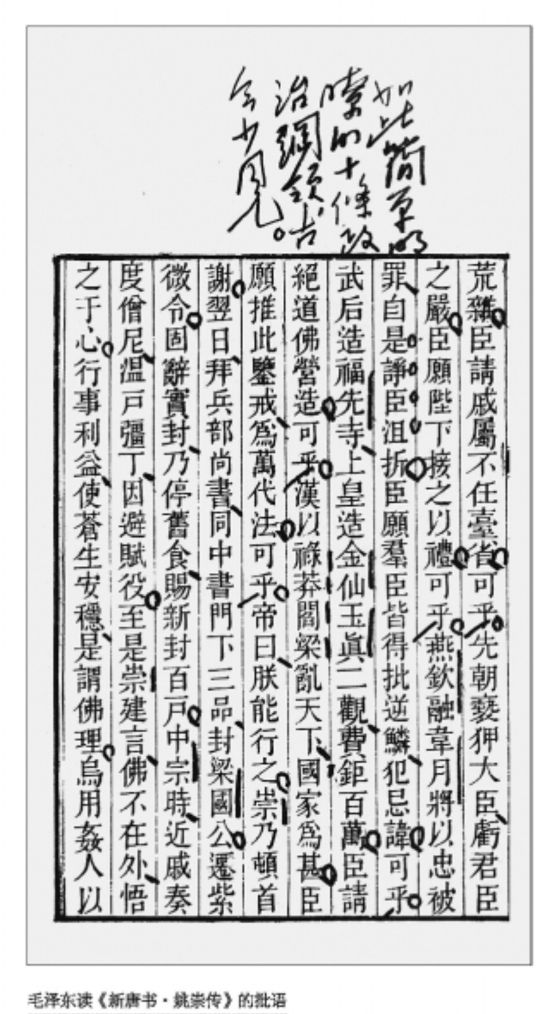 如此簡單明
瞭的十條政
治綱領，古
今少見。
荒雜臣請戚屬不任臺省可乎先朝褻狎大臣虧君臣
之嚴臣願陛下接之以禮可乎燕欽融韋月將以忠被
罪自是諍臣沮折臣願羣臣皆得批逆鱗犯忌諱可乎
武后造福先寺上皇造金仙玉眞二觀費鉅百萬臣請
絕道佛營造可乎漢以祿莽閻梁亂天下國家爲甚臣
願推此鑒戒爲萬代法可乎帝曰朕能行之崇乃頓首
謝翌日拜兵部尚書同中書門下三品封梁國公遷紫
微令固辭實封乃停舊食賜新封百戶中宗時近戚奏
度僧尼温戶彊丁因避賦役至是崇建言佛不在外悟
之于心行事利益使蒼生安穩是謂佛理烏用姦人以
毛泽东读《新唐书·姚崇传》的批语